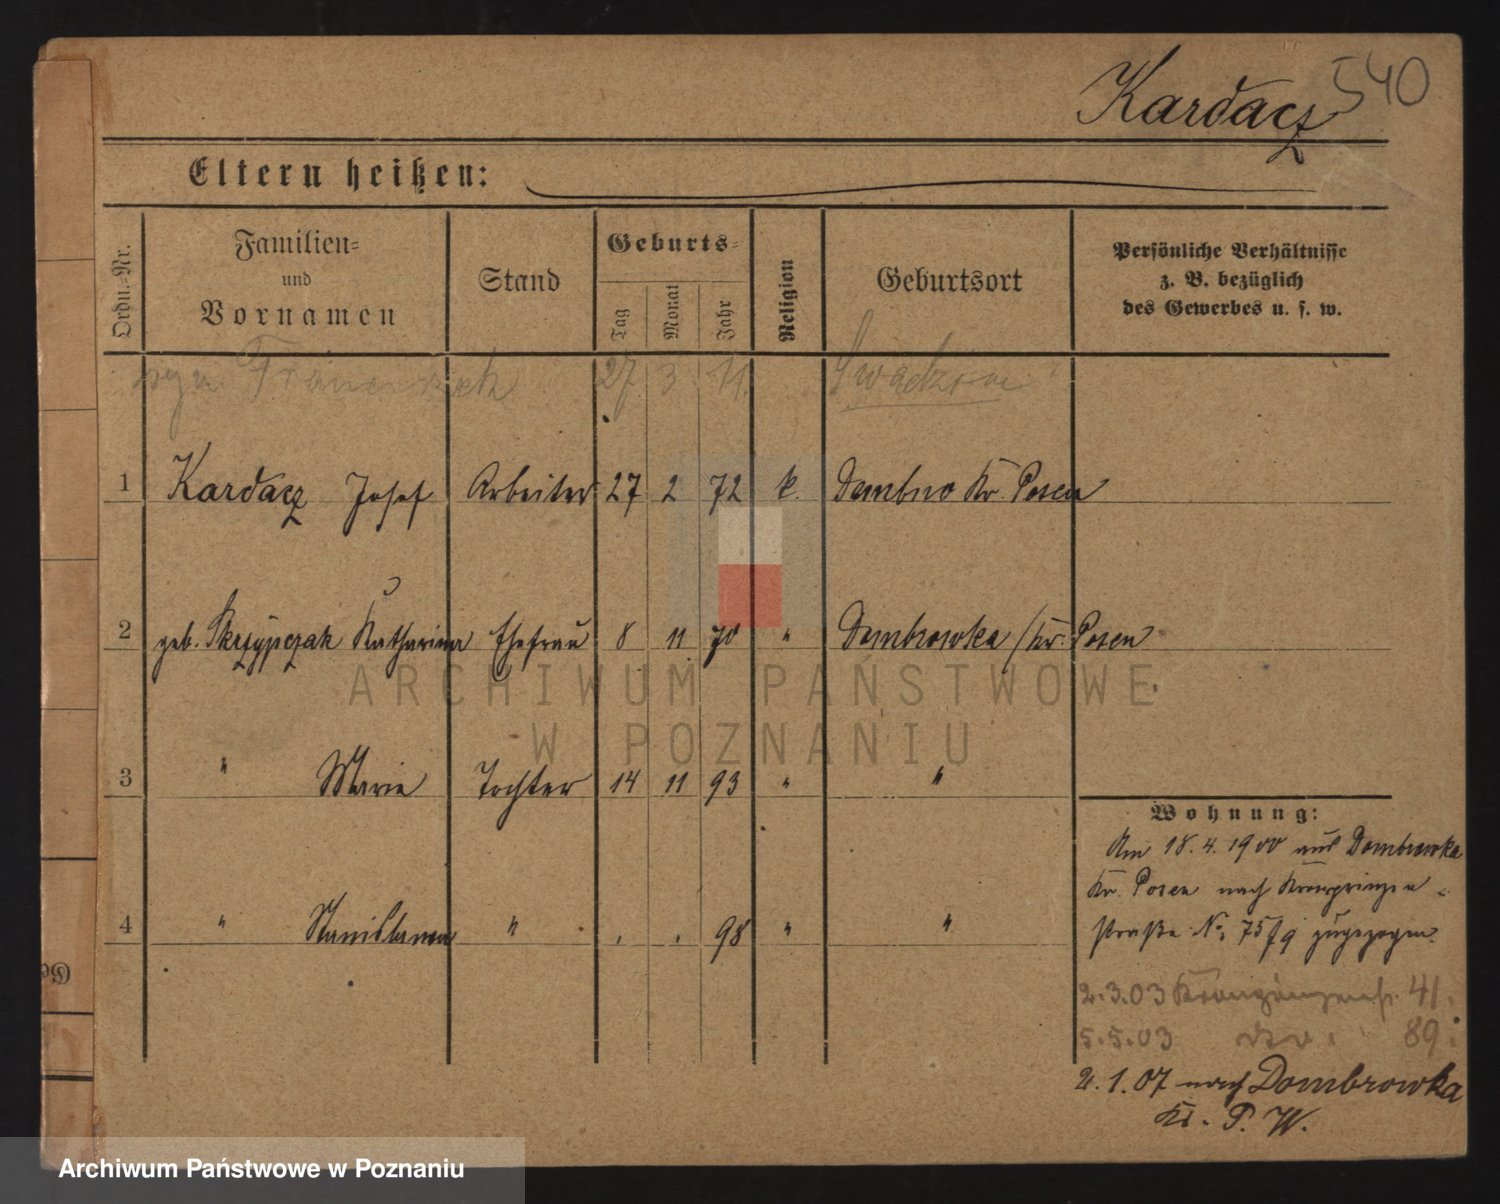 Kardacz 540
Eltern heißen:
Ordn.-Nr.
Familien-
und
Vornamen
Stand
Geburts-
Tag
Monat
Jahr
Religion
Geburtsort
Persönliche Verhältnisse
z. B. bezüglich
des Gewerbes u. s. w.
Franciszek 27 3 11. Swadzim
1 Kardacz Josef Arbeiter 27 2 72 k. Kr. Posen
2 geb. Skrzypczak Katharina Ehefrau 8 11 70 " Dombrowka / Kr. Posen
3 " Marie Tochter 14 11 93 " "
4 " Stanislawa " . . 98 " "
Wohnung:
Am 18.4.1900 aus Dombrowka
Kr. Posen nach Kronprinzen-
straße No. 75/9 zugezogen.
2.3.03 Kronprinzenstr. 41.
5.5.03 89.
2.1.07 nach Dombrowka
Kr. P. W.
ARCHIWUM PAŃSTWOWE
W POZNANIU
Archiwum Państwowe w Poznaniu